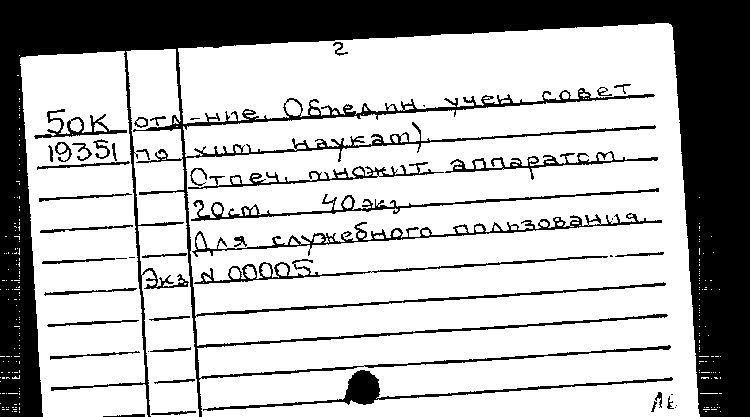 2
50К отд-ние. Объедин. учен. совет
19351 по хим. наукам).
Отпеч. множит. аппаратом.
20см. 40экз.
Для служебного пользования.
Экз N 00005.